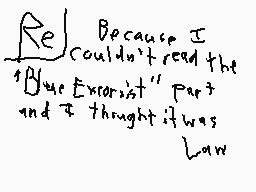 Re Because I
couldn't read the
"Blue Exorsist" part
and I thought it was
Law